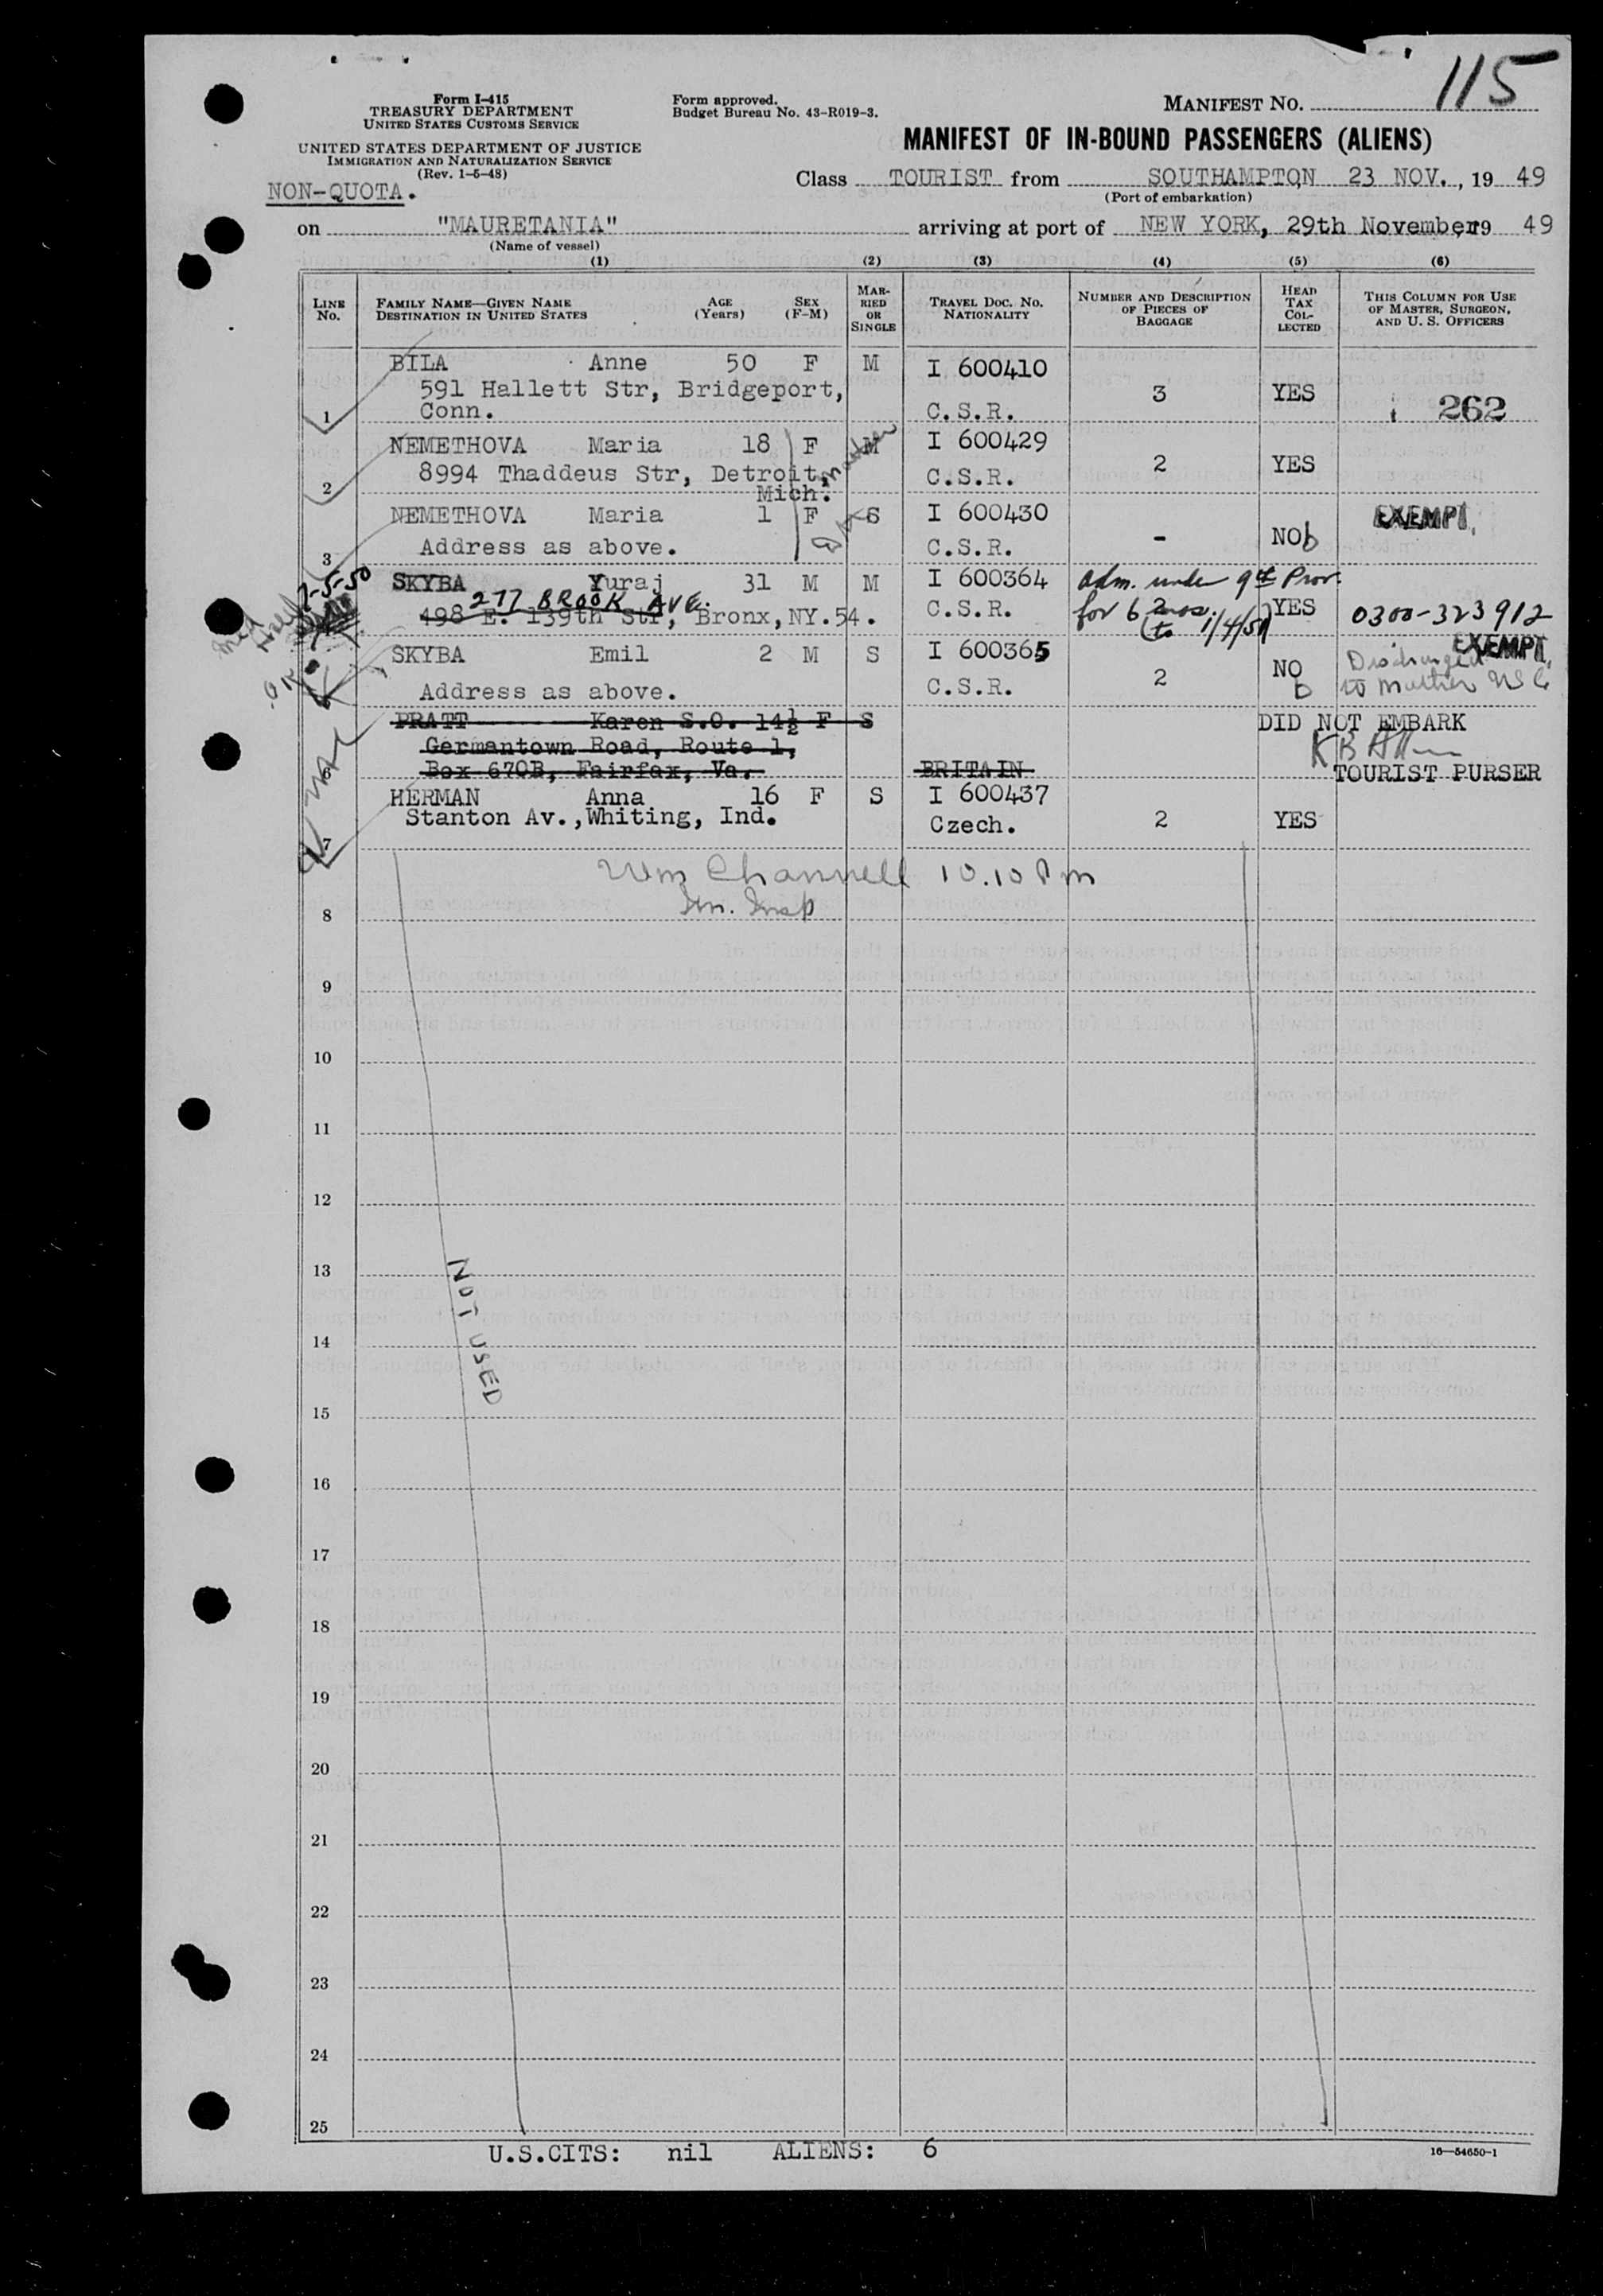 115
Form I-415
TREASURY DEPARTMENT
UNITED STATES CUSTOMS SERVICE
UNITED STATES DEPARTMENT OF JUSTICE
IMMIGRATION AND NATURALIZATION SERVICE
(Rev. 1-5-48)
Form approved.
Budget Bureau No. 43-R019-3.
MANIFEST NO.
MANIFEST OF IN-BOUND PASSENGERS (ALIENS)
NON-QUOTA.
Class TOURIST from SOUTHAMPTON 23 NOV., 19 49
(Port of embarkation)
on "MAURETANIA" arriving at port of NEW YORK, 29th November, 19 49
(Name of vessel)
(1) (2) (3) (4) (5) (6)
LINE No. FAMILY NAME—GIVEN NAME DESTINATION IN UNITED STATES AGE (Years) SEX (F-M) MARRIED OR SINGLE TRAVEL DOC. NO. NATIONALITY NUMBER AND DESCRIPTION OF PIECES OF BAGGAGE HEAD TAX COLLECTED THIS COLUMN FOR USE OF MASTER, SURGEON, AND U. S. OFFICERS
BILA Anne 50 F M I 600410
591 Hallett Str, Bridgeport, 3 YES
1 Conn. C.S.R. 262
NEMETHOVA Maria 18 F M I 600429
8994 Thaddeus Str, Detroit, C.S.R. 2 YES
2 Mich.
NEMETHOVA Maria 1 F S I 600430 EXEMPT
3 Address as above. C.S.R. - NO
SKYBA Yuraj 31 M M I 600364 adm. under 9th Prov.
277 BROOK AVE.
498 E. 139th Str, Bronx, NY.54. C.S.R. for 6 mos. YES 0300-323912
(to 1/4/51)
2-5-50
SKYBA Emil 2 M S I 600365 EXEMPT
Address as above. C.S.R. 2 NO Discharged
to mother
PRATT Karen S.O. 14½ F S DID NOT EMBARK
Germantown Road, Route 1,
6 Box 670B, Fairfax, Va. BRITAIN TOURIST PURSER
HERMAN Anna 16 F S I 600437
Stanton Av., Whiting, Ind. Czech. 2 YES
7
Wm Channell 10.10 Pm
Im. Insp
8
9
10
11
12
13
NOT USED
14
15
16
17
18
19
20
21
22
23
24
25
U.S.CITS: nil ALIENS: 6
16—54650-1